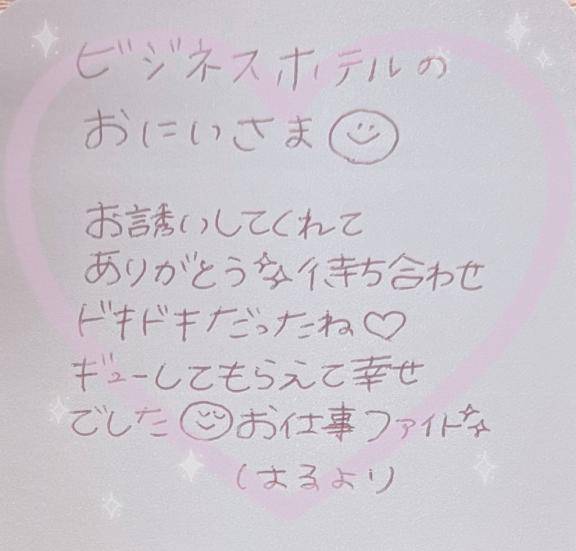 ビジネスホテルの
おにいさま
お誘いしてくれて
ありがとう 待ち合わせ
ドキドキだったね♡
ギューしてもらえて幸せ
でした お仕事ファイト
はるより